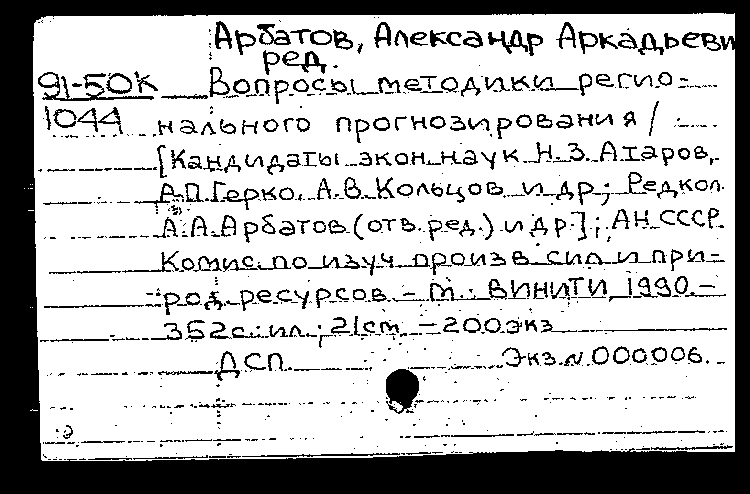 Арбатов, Александр Аркадьеви
ред.
91-50К Вопросы методики регио-
1044 нального прогнозирования /
[Кандидаты экон. наук Н.З. Атаров,
А.П. Герко, А.В. Кольцов и др.; Редкол.
А.А. Арбатов (отв. ред.) и др.]; АН СССР.
Комис. по изуч. произв. сил и при-
род. ресурсов. – М.: ВИНИТИ, 1990. –
352 с.: ил.; 21 cm. – 200 экз
ДСП. Экз. N 000006.